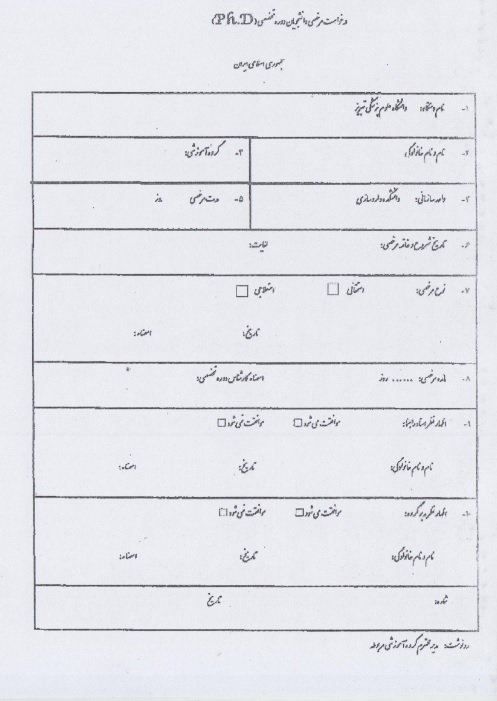 درخواست مرخصی دانشجویان دوره تخصصی (Ph.D)
جمهوری اسلامی ایران
۱- نام دستگاه: دانشگاه علوم پزشکی تبریز
۲- نام و نام خانوادگی:
۳- گروه آموزشی:
۴- واحد سازمانی: دانشکده داروسازی
۵- مدت مرخصی روز
۶- تاریخ شروع و خاتمه مرخصی: لغایت:
۷- نوع مرخصی: استحقاقی استعلاجی
تاریخ: امضاء:
۸- مانده مرخصی: ...... روز امضاء کارشناس دوره تخصصی:
۹- اظهار نظر استاد راهنما: موافقت می شود موافقت نمی شود
نام و نام خانوادگی: تاریخ: امضاء:
۱۰- اظهار نظر مدیر گروه: موافقت می شود موافقت نمی شود
نام و نام خانوادگی: تاریخ: امضاء:
شماره: تاریخ
رونوشت: مدیر محترم گروه آموزشی مربوطه